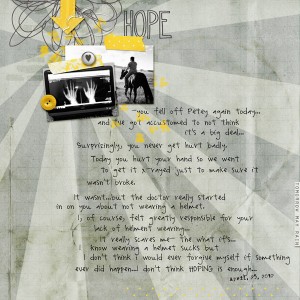 HOPE
you fell off Petey again today...
and I've got accustomed to not think
it's a big deal...
Surprisingly, you never get hurt badly.
Today you hurt your hand so we went
to get it x-rayed just to make sure it
wasn't broke.
It wasn't...but the doctor really started
in on you about not wearing a helmet.
I, of course, felt greatly responsible for your
lack of helment wearing...
It really scares me- the what if's...
know wearing a helmet sucks but
I don't think i would ever forgive myself if something
ever did happen...I don't think HOPING is enough...